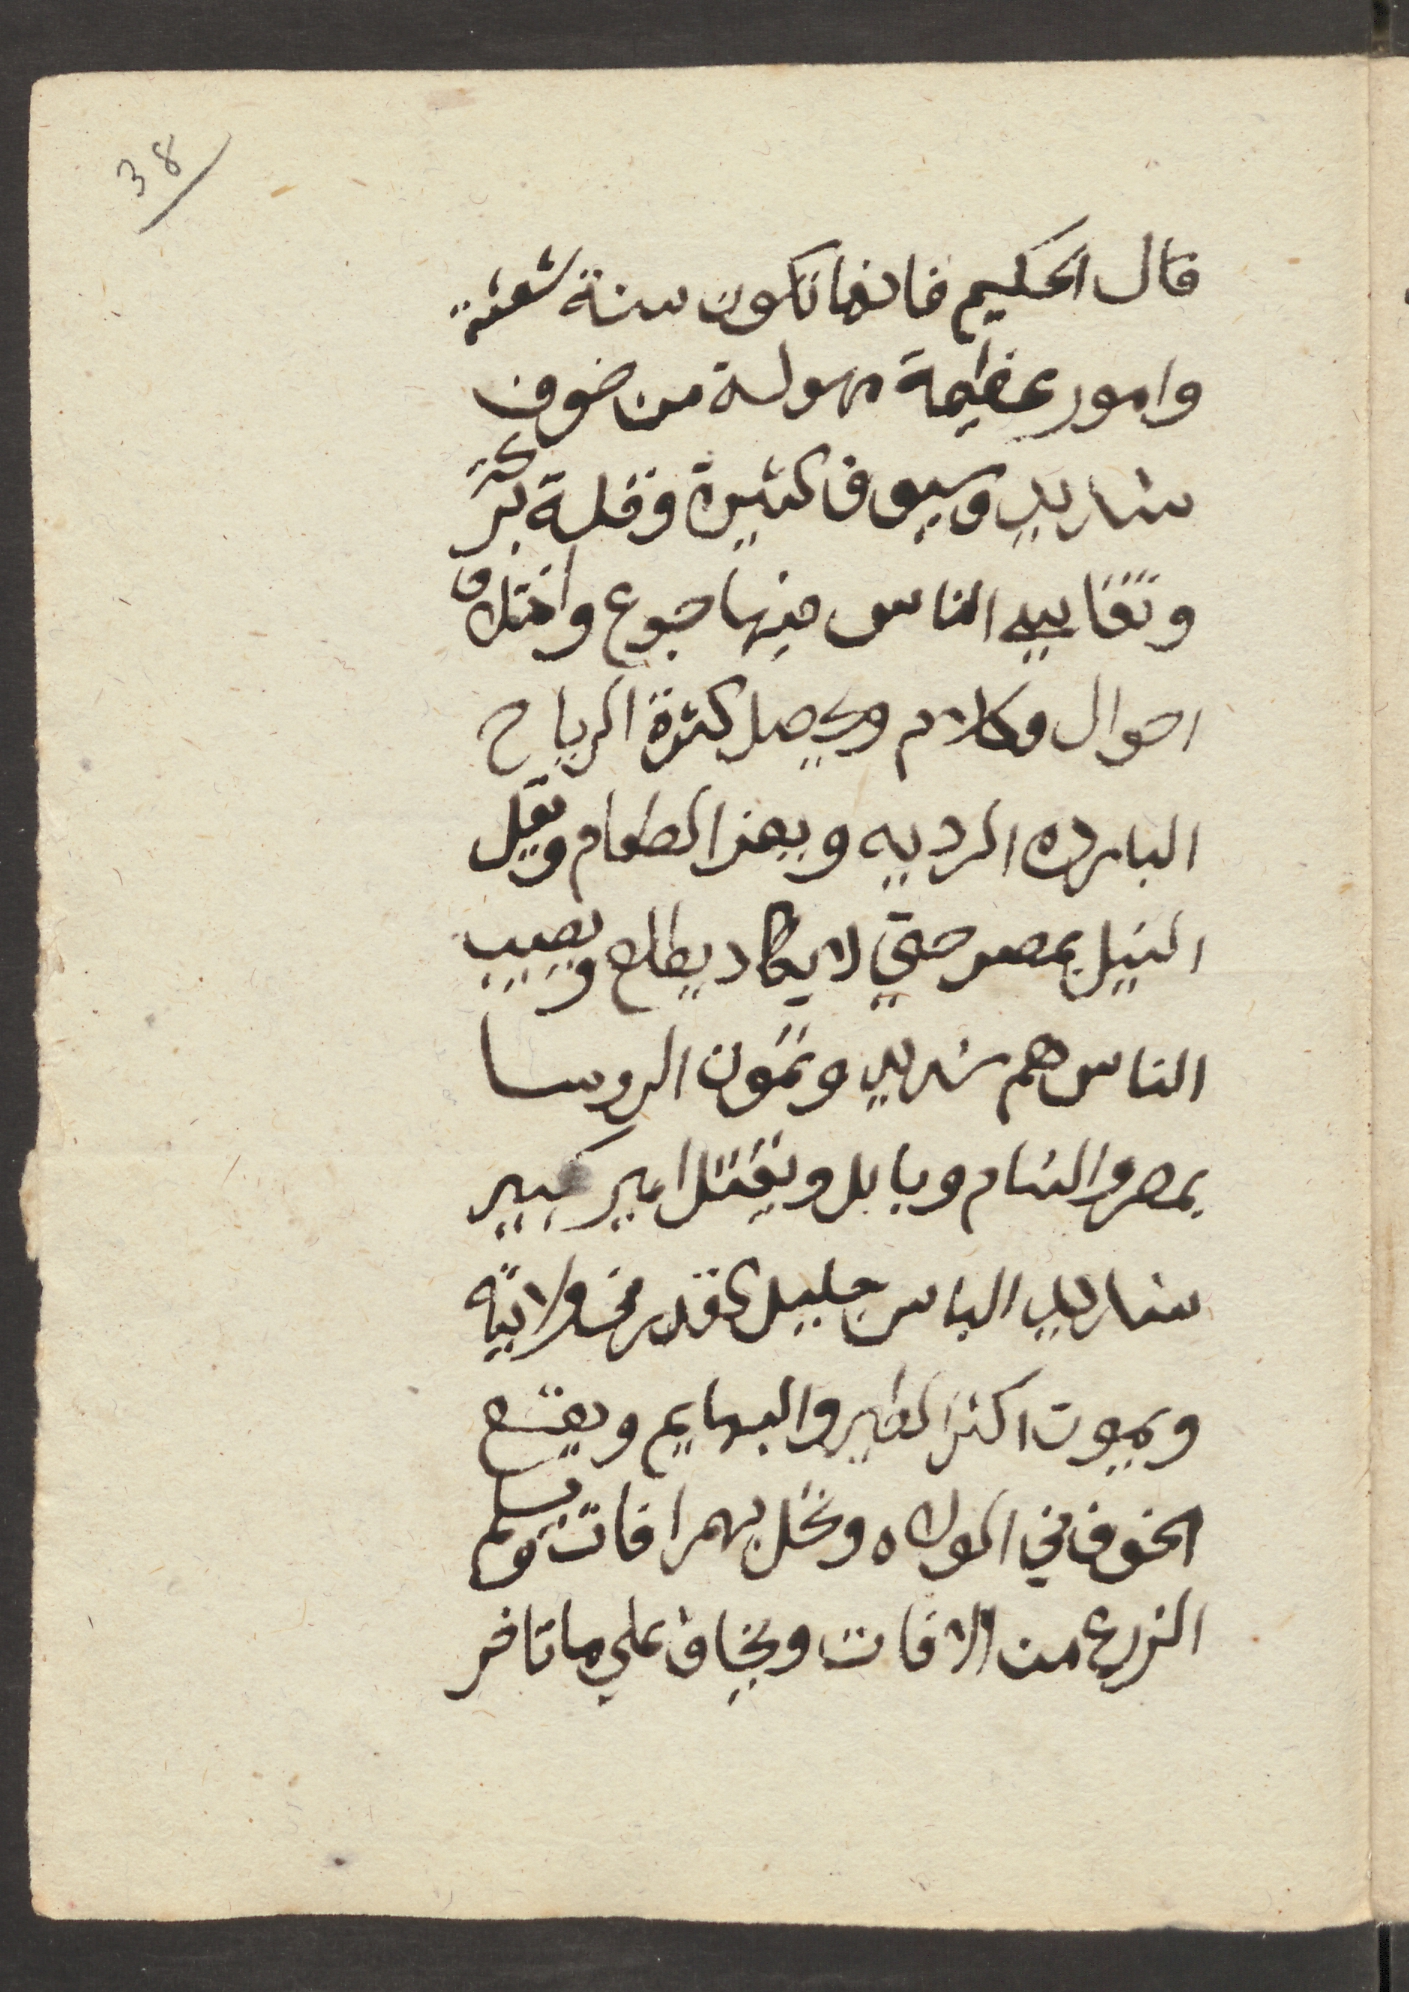 38
قال الحكيم فانها تكون سنة شعثة
وامور عظيمة مهولة من خوف
شديد وسيوف كثيرة وقلة بركة
وتقاسي الناس فيها جوع واختلاف
احوال وكلام ويحصل كثرة الرياح
البارده الرديه ويعز الطعام ويقل
النيل بمصر حتي لا يكاد يطلع ويصيب
الناس هم شديد وتموت الروسا
بمصر والشام وبابل ويقتل امير كبير
شديد الباس جليل القدر في ولايته
ويموت اكثر الطير والبهايم ويقع
الخوف في الولاه وتحل بهم افات ويسلم
الزرع من الافات ويخاف علي ما تاخر